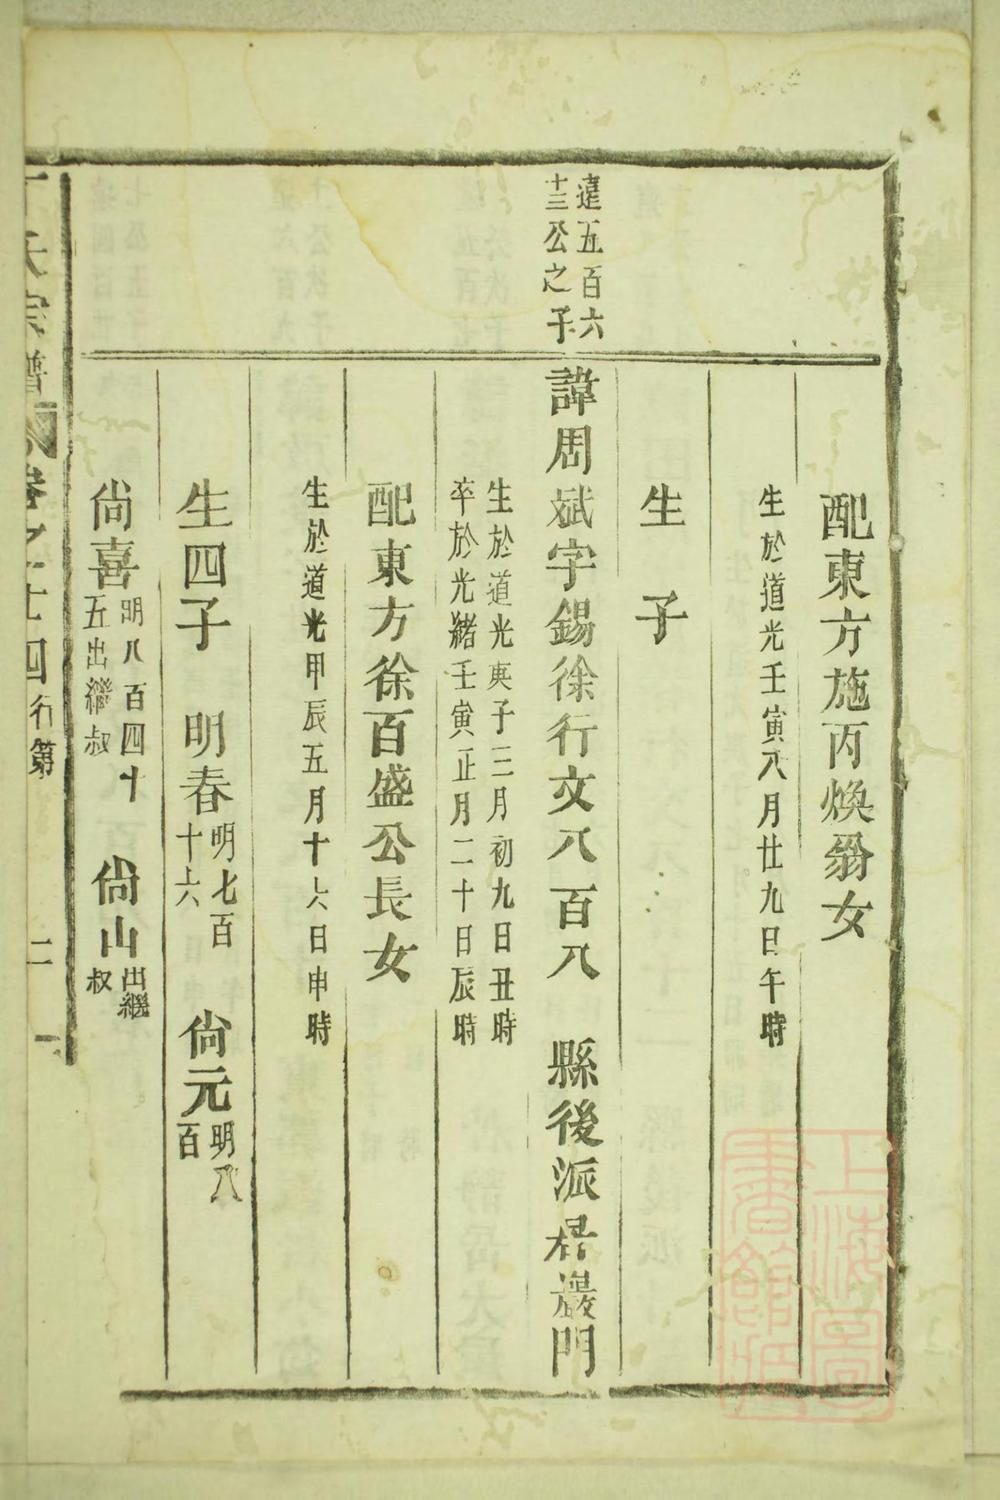 配東方施丙煥翁女
生於道光壬寅八月廿九日午時
生　子
達五百六
十三公之子
諱周斌字錫徐行文八百八　縣後派居巖門
生於道光庚子三月初九日丑時
卒於光緒壬寅正月二十日辰時
配東方徐百盛公長女
生於道光甲辰五月十六日申時
生四子　明春
明七百
十六
尙元
明八
百
尙喜
明八百四十
五出繼叔
尙山
出繼
叔
氏宗譜
卷之十四行第
二
上海圖書館藏